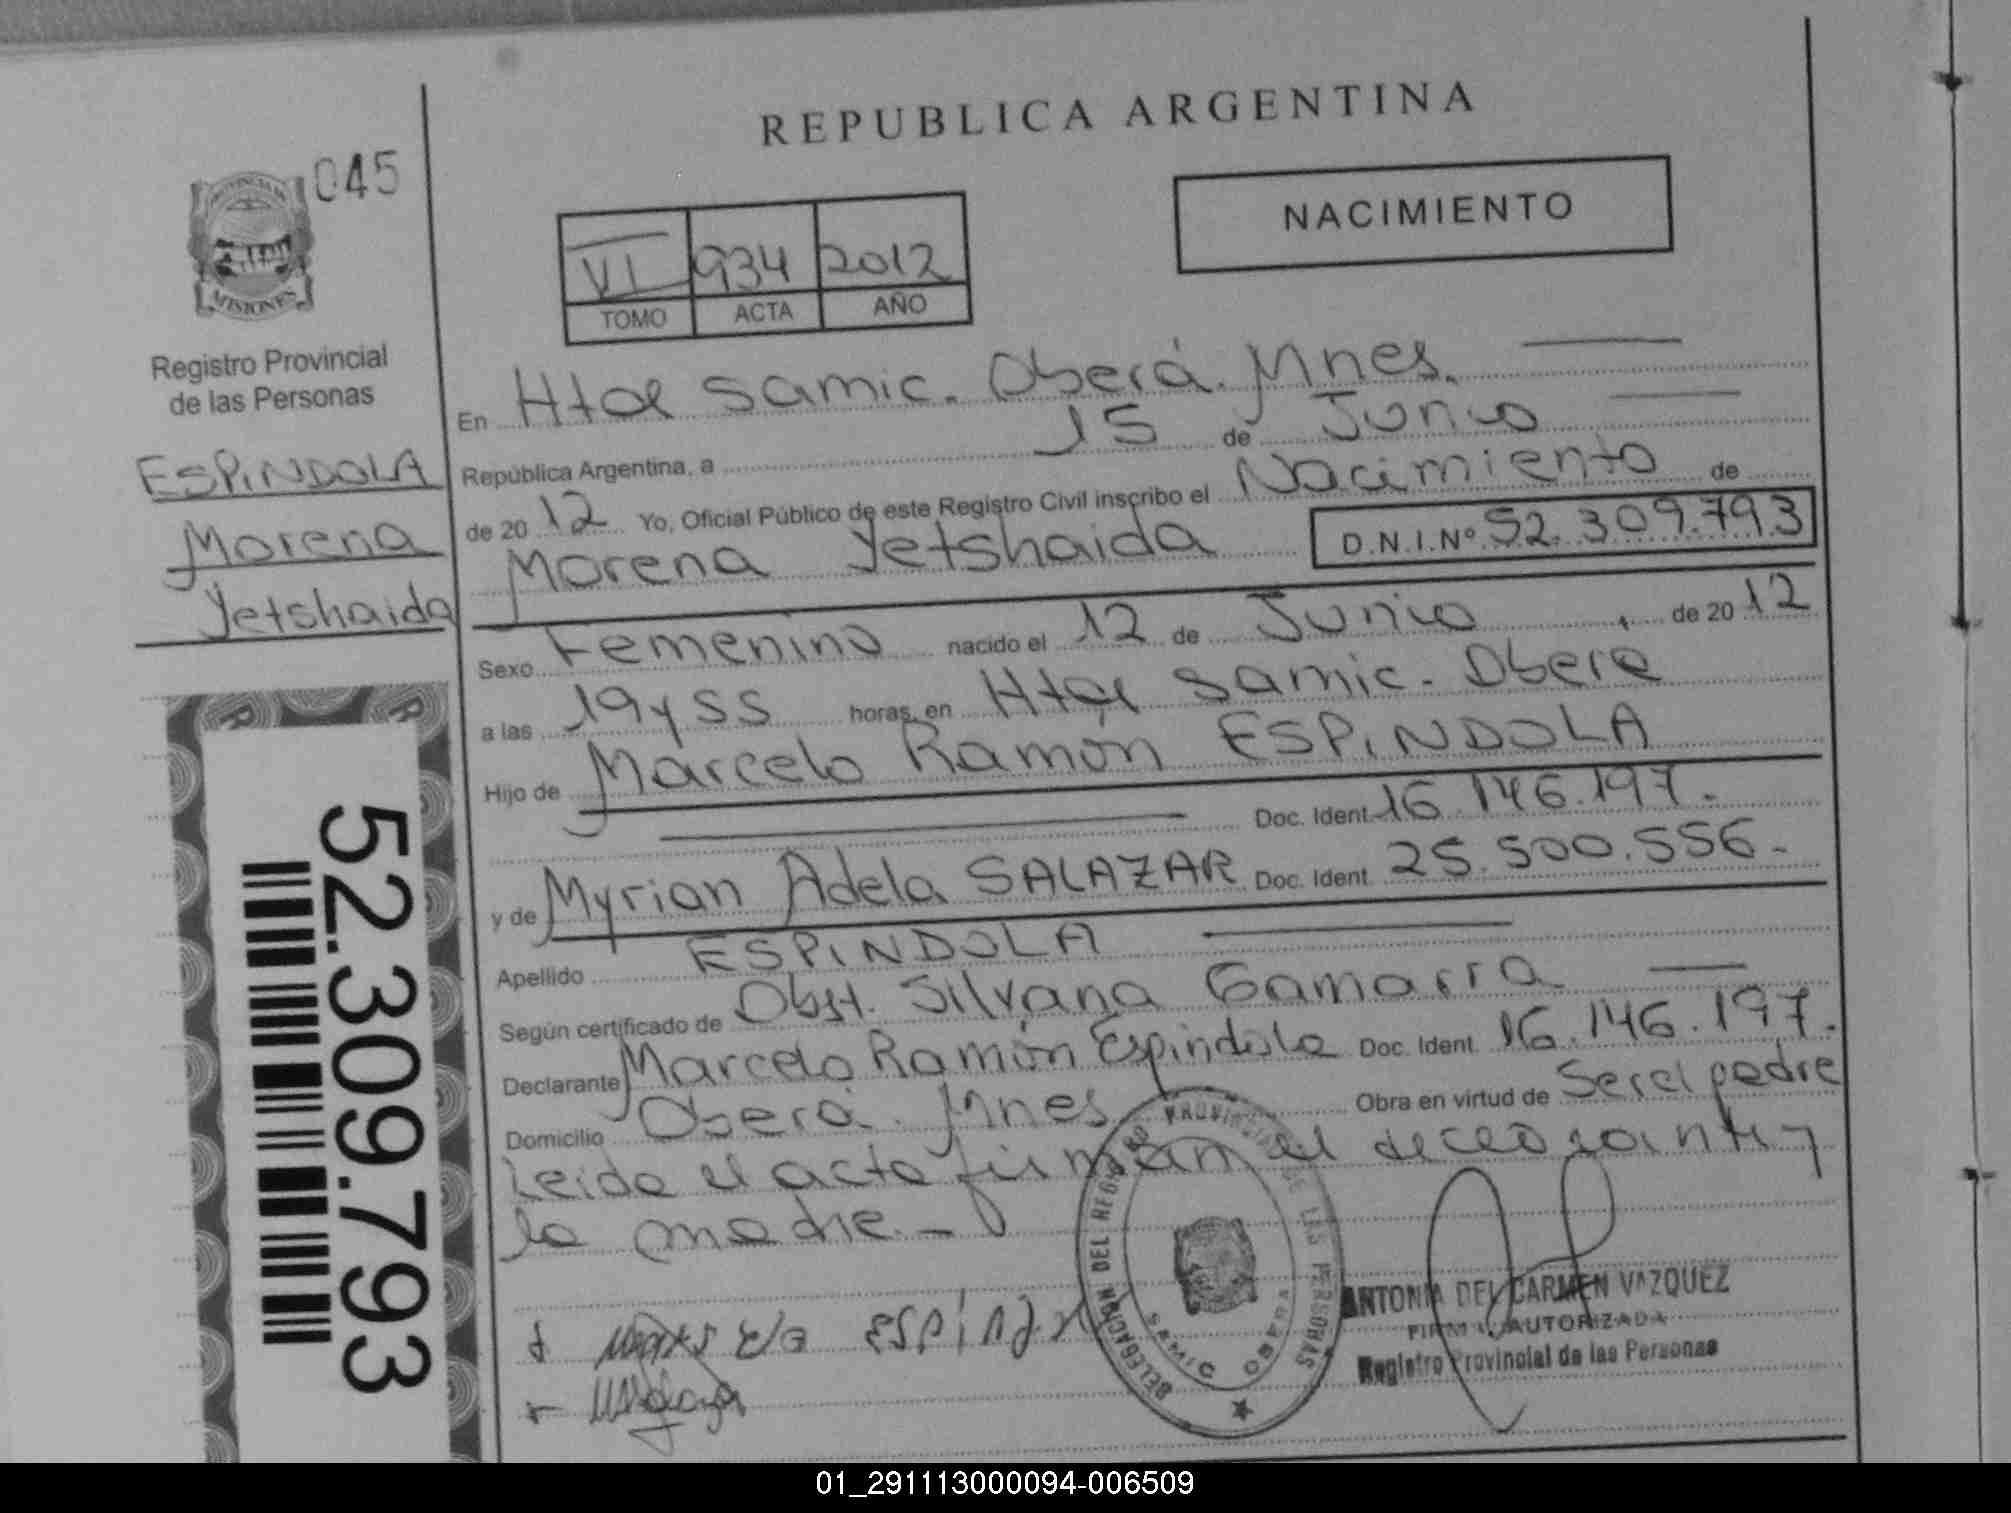 REPUBLICA ARGENTINA
045
PROVINCIA DE
MISIONES
Registro Provincial
de las Personas
ESPINDOLA
Morena
Yetshaida
52.309.793
NACIMIENTO
VI 934 2012
TOMO ACTA AÑO
En Htal Samic. Oberá. Mnes.
República Argentina, a 15 de Junio
de 2012 Yo, Oficial Público de este Registro Civil inscribo el Nacimiento de
Morena Yetshaida D.N.I.Nº 52.309.793
Sexo Femenino nacido el 12 de Junio de 2012
a las 19 y 55 horas, en Htal Samic. Oberá
Hijo de Marcelo Ramón ESPINDOLA
Doc. Ident. 16.146.197.
y de Myrian Adela SALAZAR Doc. Ident. 25.500.556.-
Apellido ESPINDOLA
Según certificado de Obst. Silvana Gamarra
Declarante Marcelo Ramón Espindola Doc. Ident. 16.146.197.
Domicilio Oberá. Mnes. Obra en virtud de Ser el padre
Leida el acta firman el declarante y
la madre.-
DELEGACION DEL REGISTRO PROVINCIAL DE LAS PERSONAS
OBERA
ANTONIA DEL CARMEN VAZQUEZ
FIRMA AUTORIZADA
Registro Provincial de las Personas
01_291113000094-006509